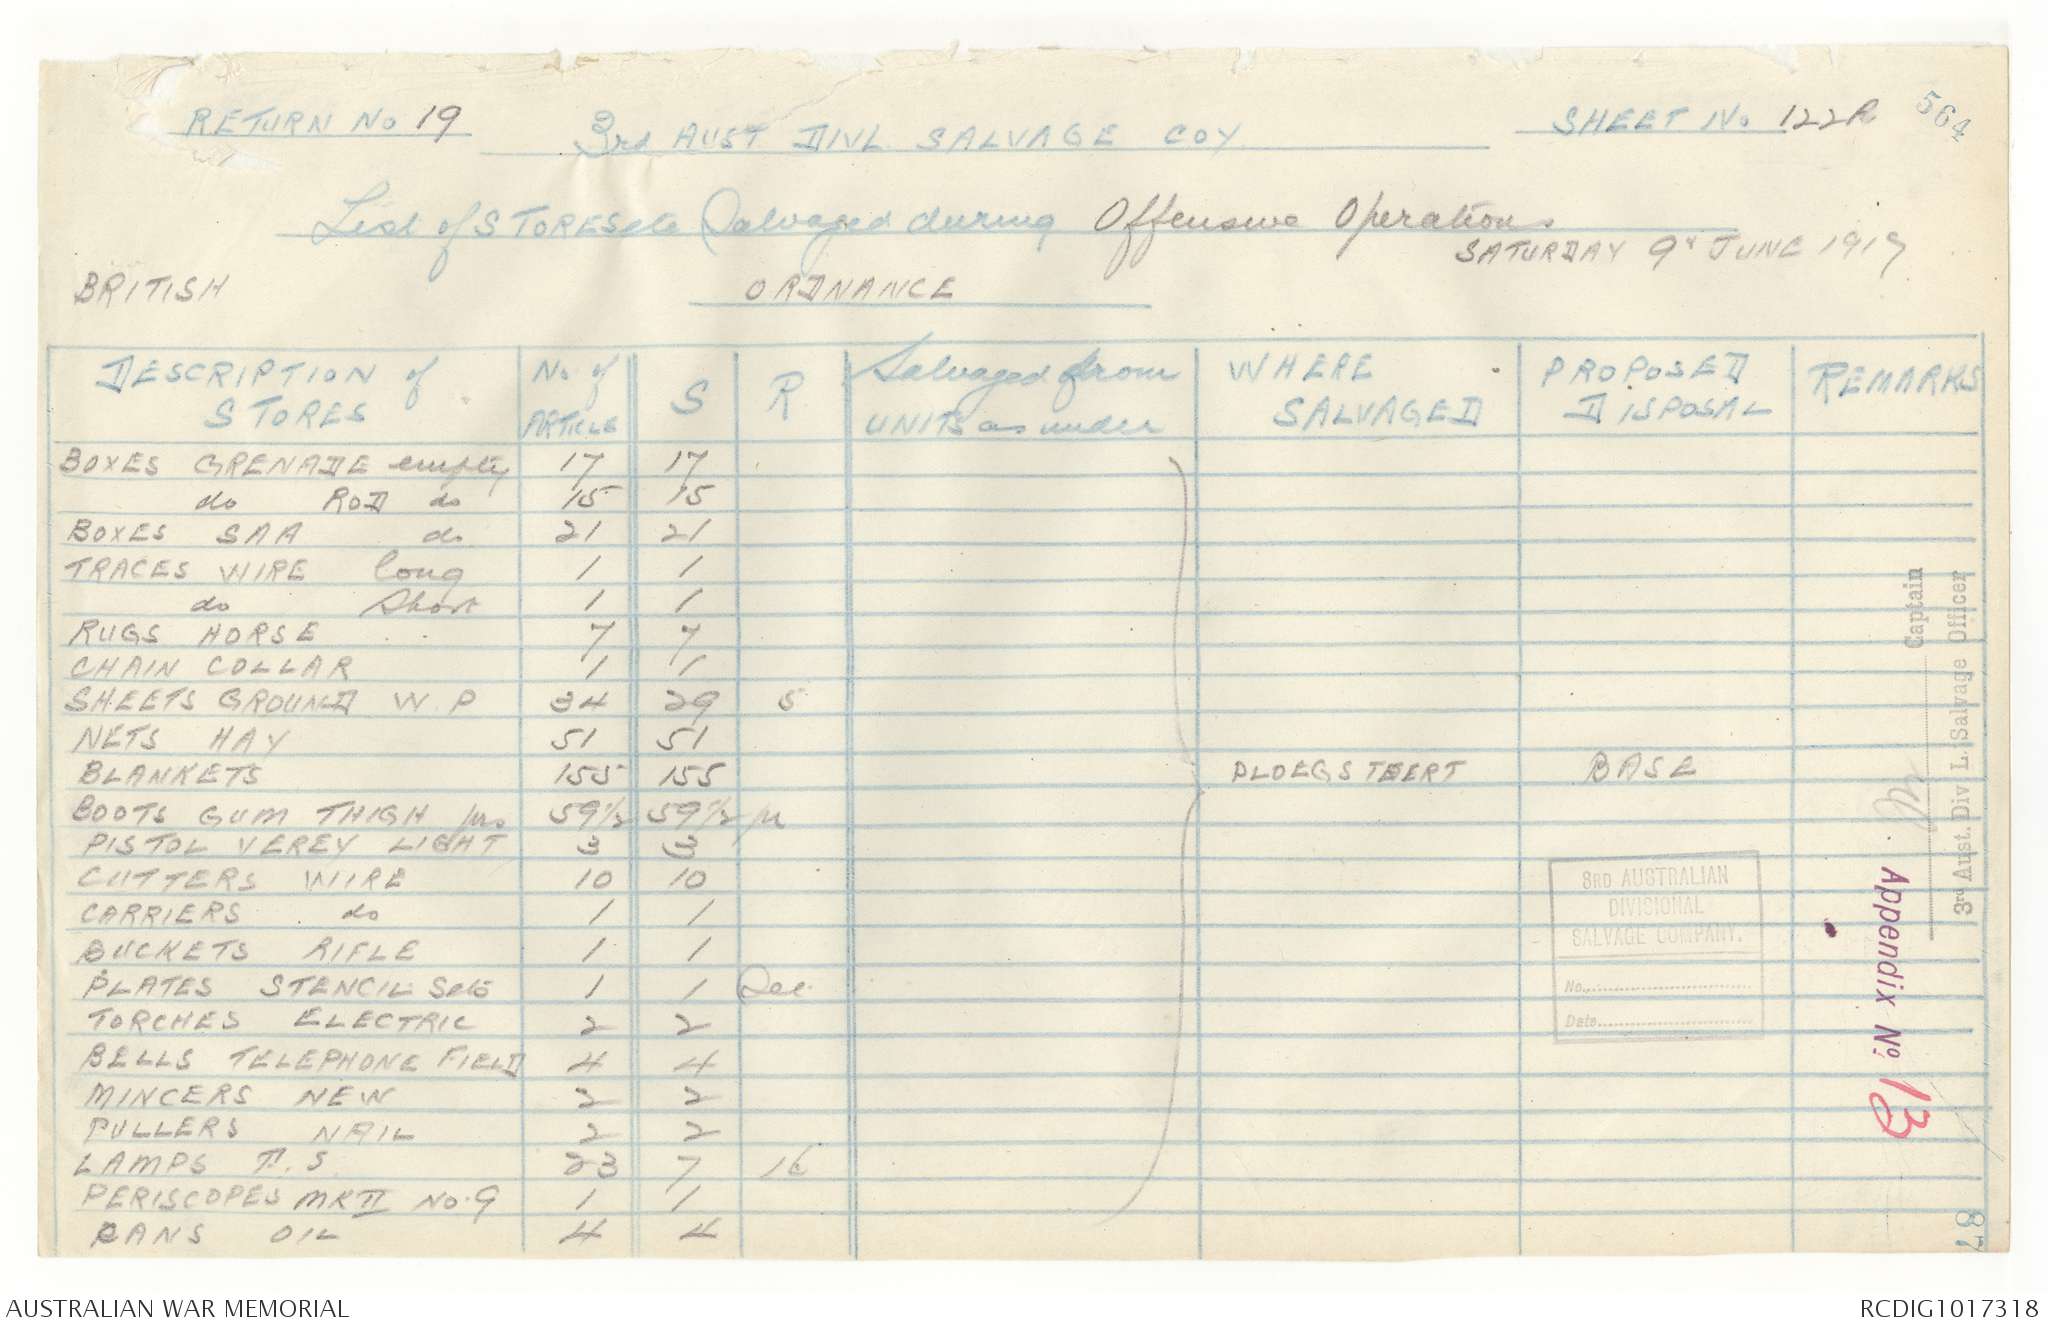 RETURN No 19
3rd AUST DIVL SALVAGE COY
SHEET No 122R
564
List of STORES etc Salvaged during Offensive Operations
SATURDAY 9th JUNE 1917
BRITISH
ORDNANCE
DESCRIPTION of STORES No. of ARTICLE S R Salvaged from UNITS as under WHERE SALVAGED PROPOSED DISPOSAL REMARKS
BOXES GRENADE empty 17 17
do ROD do 15 15
BOXES SAA do 21 21
TRACES WIRE long 1 1
do Short 1 1
RUGS HORSE 7 7
CHAIN COLLAR 1 1
SHEETS GROUND W.P 34 29 5
NETS HAY 51 51
BLANKETS 155 155 PLOEGSTEERT BASE
BOOTS GUM THIGH prs 59½ 59½ pr
PISTOL VEREY LIGHT 3 3
CUTTERS WIRE 10 10
CARRIERS do 1 1
BUCKETS RIFLE 1 1
PLATES STENCIL Sets 1 1
TORCHES ELECTRIC 2 2
BELLS TELEPHONE FIELD 4 4
MINCERS NEW 2 2
PULLERS NAIL 2 2
LAMPS T.S. 23 7 16
PERISCOPES MK II No. 9 1 1
CANS OIL 4 4
3RD AUSTRALIAN
DIVISIONAL
SALVAGE COMPANY.
No.
Date
Captain
3rd Aust. Div'l. Salvage Officer
Appendix No. 13
87
AUSTRALIAN WAR MEMORIAL
RCDIG1017318